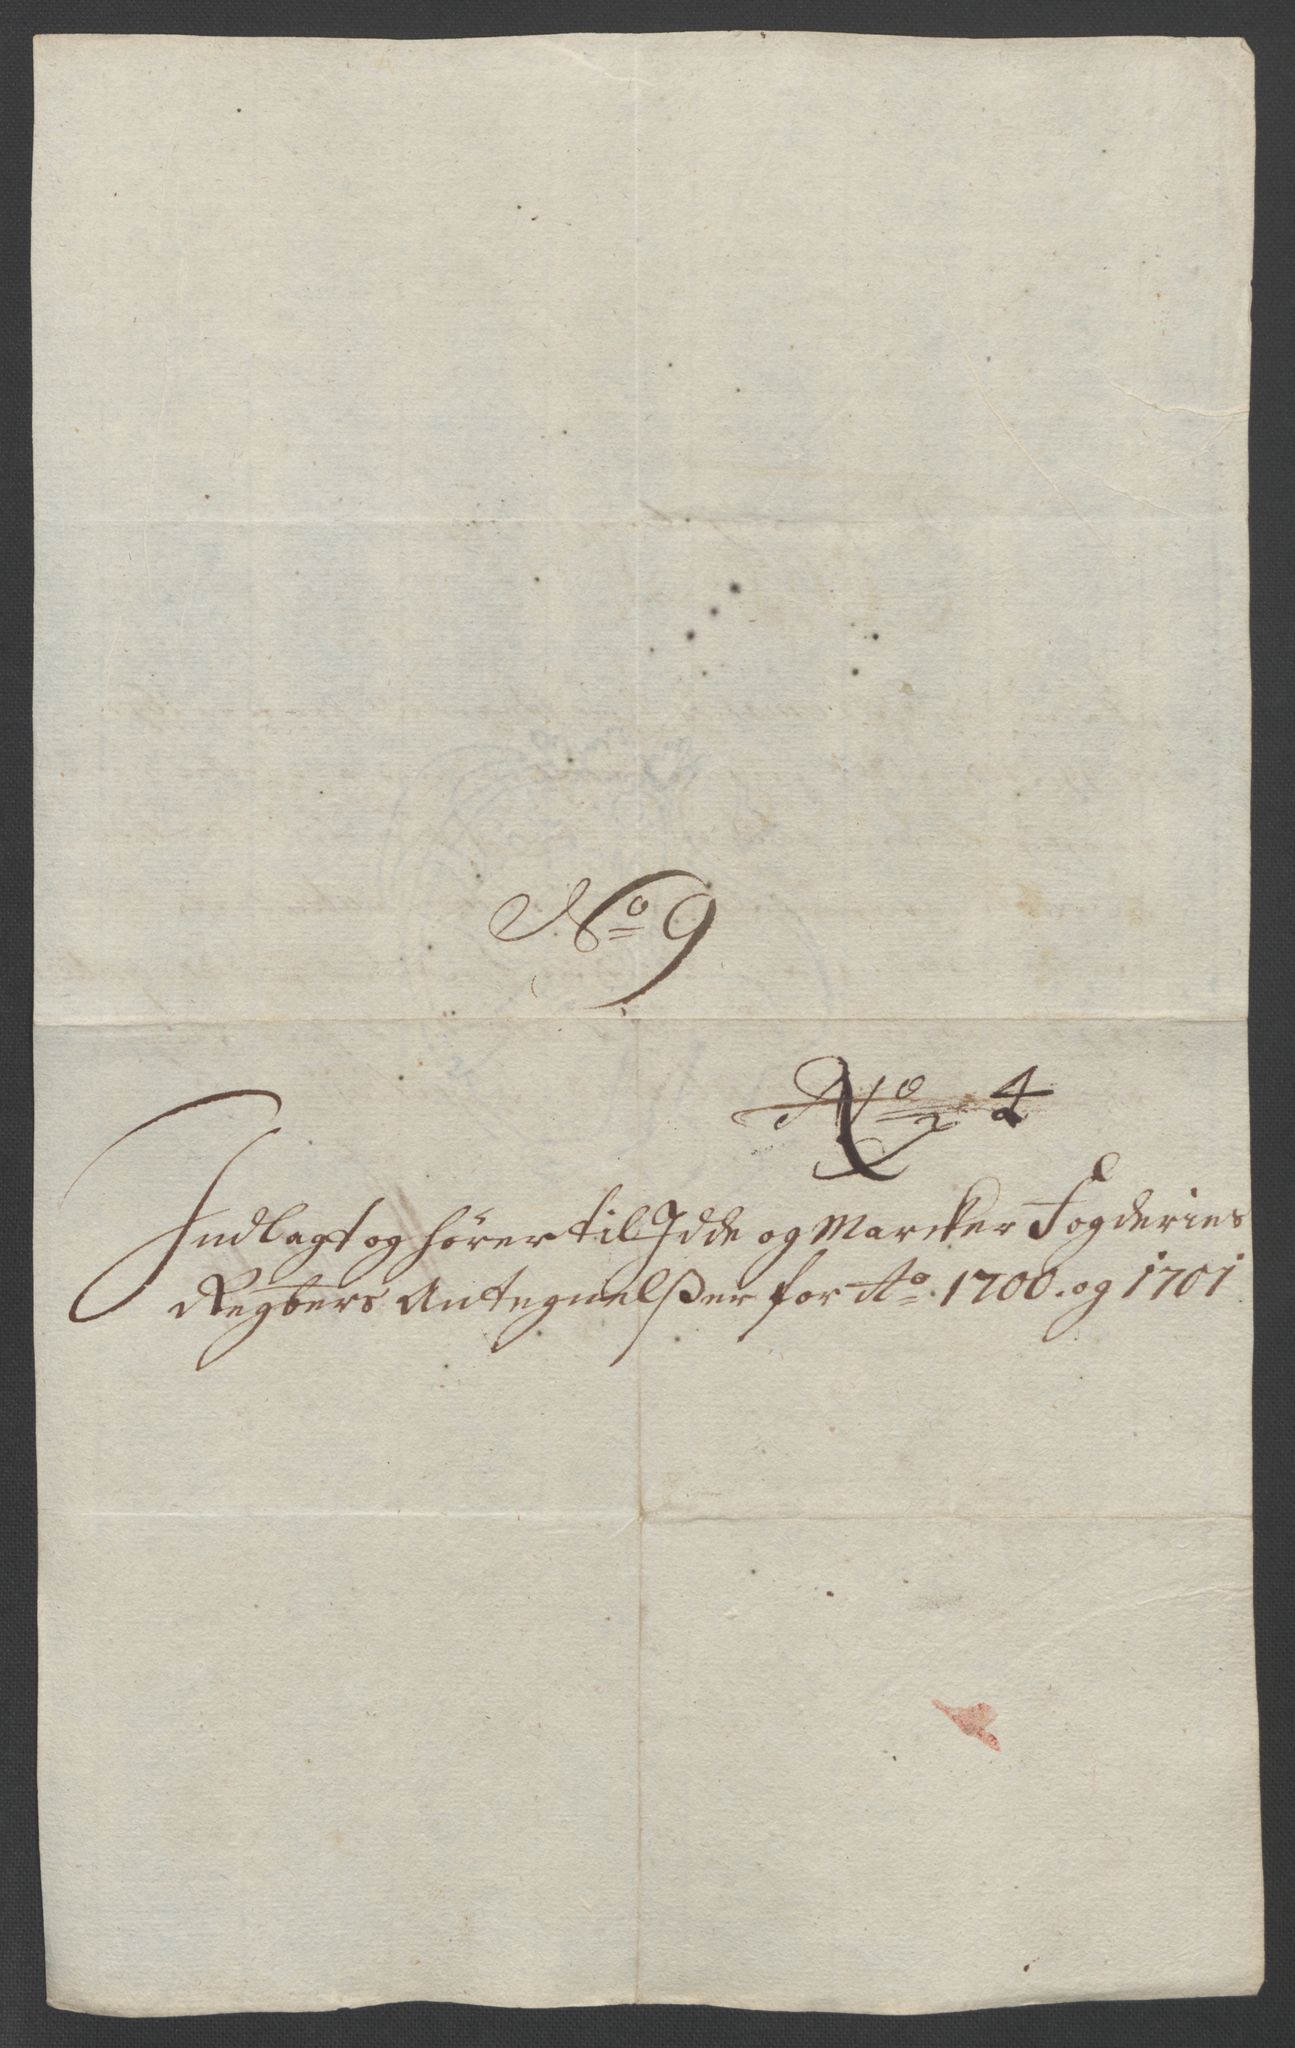 No 9
No 4
Indlagt og hörer til Idde og Marcker Fogderies
Regbers Antegnelßer for Ao. 1700. og 1701